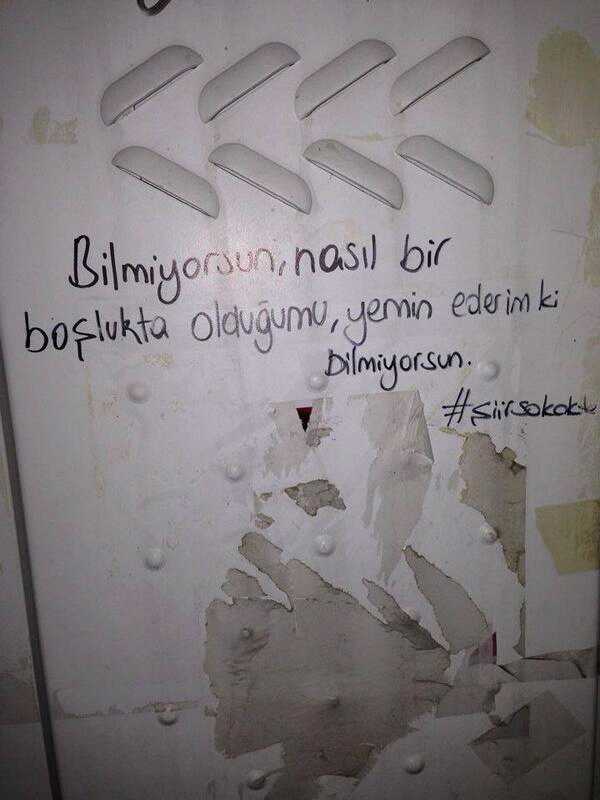 Bilmiyorsun, nasıl bir
boşlukta olduğumu, yemin ederim ki
bilmiyorsun.
#şiirsokakta